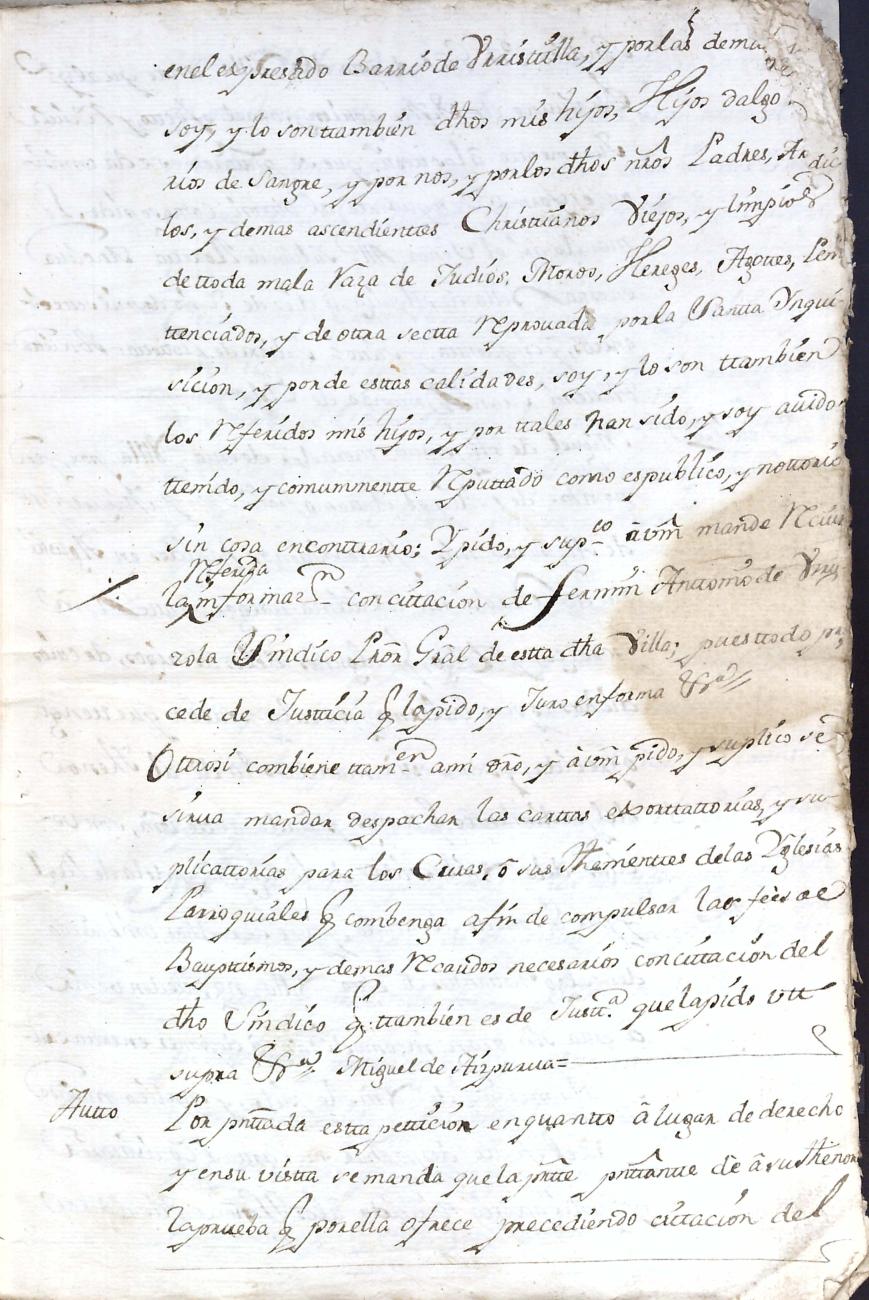 enel expresado Barrio de Vrristilla, y por las demas
soy, y lo son ttambien dhos mis hijos, Hijos dalgo
rios de sangre, y por nos, y por los dhos nr̃os Padres,
los, y demas ascendienttes Christianos Viejos, y limpios
de ttoda mala raza de Judios, Moros, Hereges, Agottes, Peni
ttenciados, y de ottra sectta Reprovada por la Santta Ynqui
sicion, y por de esttas calidades, soy, y lo son ttambien
los Referidos mis hijos, y por ttales han sido, y soy auido
ttenido, y comunmentte Reputtado como es publico, y nottorio
sin cosa en conttrario; Ypido, y sup.co â vm̃ mande Reciuir
Referida
la informaz.on con cittacion de Fermin Anttonio de Vrui
zola Sindico Pror Grãl de estta dha Villa; pues ttodo pro
cede de Justticia q̃ la pido, y Juro en forma &ra
Ottrosi combiene ttam.en ami dr̃o, y â vm̃ pido, y suplico se
sirua mandar despachar las carttas exorttattorias, y su
plicattorias para los Curas, ô sus thenienttes de las Yglesias
Parroquiales q̃ combenga afin de compulsar las feès de
Bapttismos, y demas Recaudos necesarios con cittacion del
dho Sindico q̃ ttambien es de Justt.a que la pido vtt
supra &ra Miguel de Aizpurua=
Autto Por pñttada estta petticion en quantto â lugar de derecho
y en su vistta se manda que la pñtte pñttantte dê â su thenor
la prueba q̃ por ella ofrece precediendo cittacion del